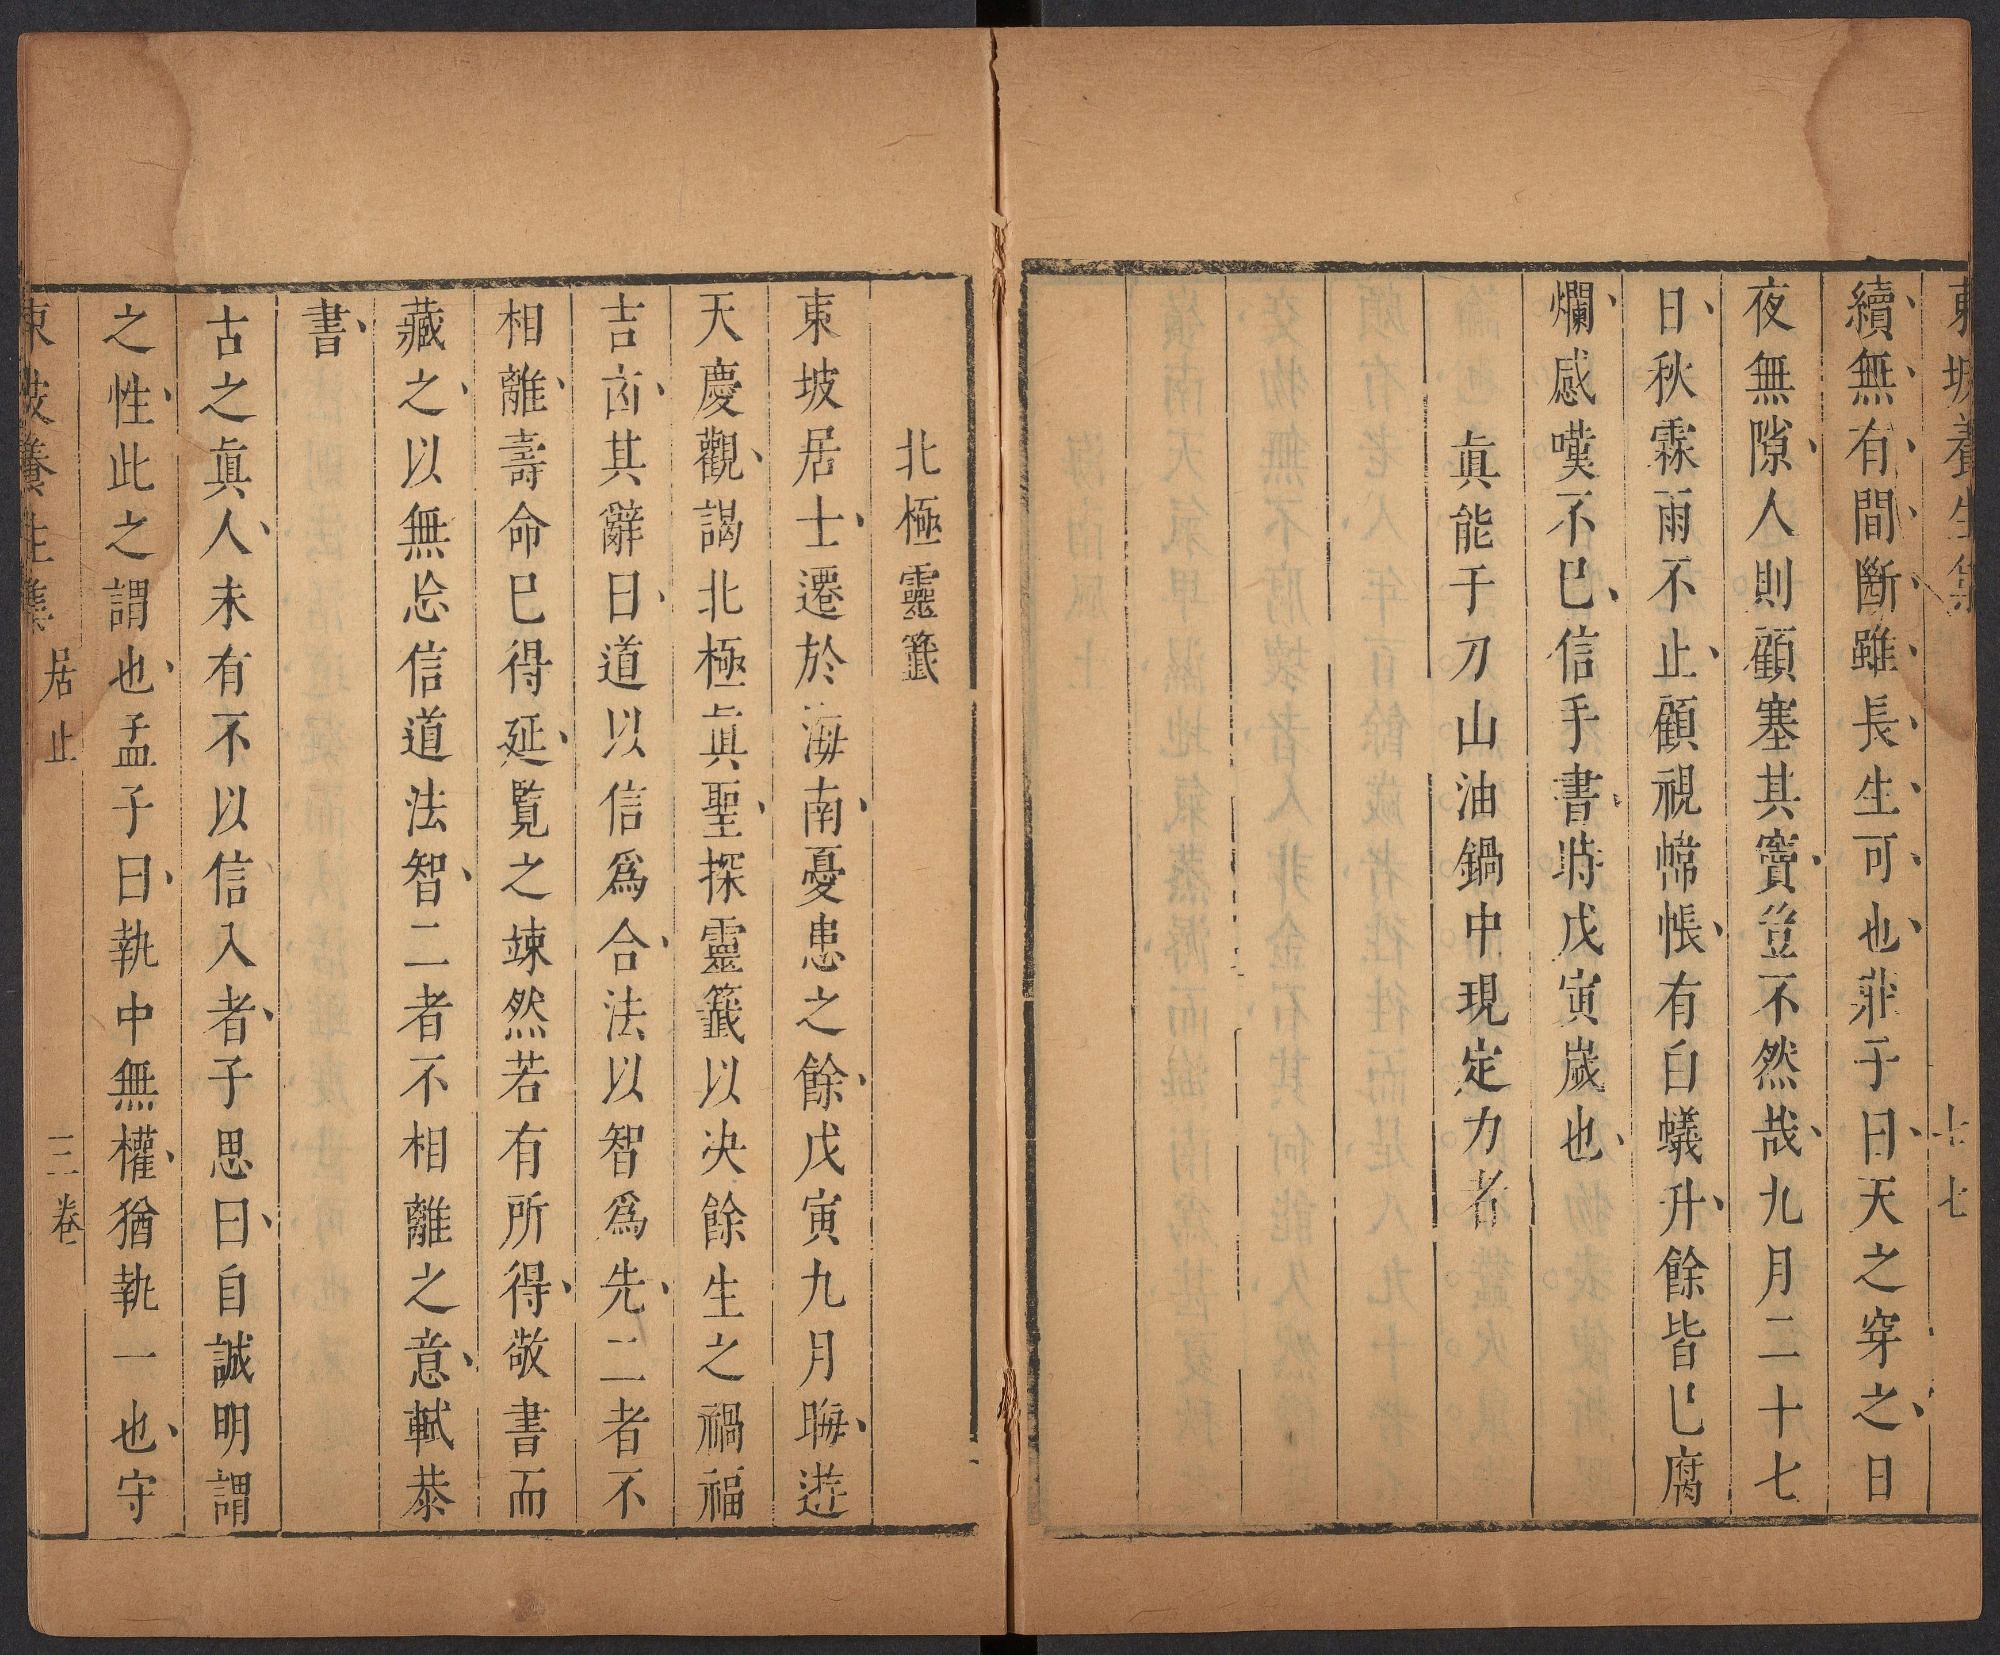 東坡養生集
十七
續無有間斷雖長生可也莊子曰天之穿之日
夜無隙人則顧塞其竇豈不然哉九月二十七
日秋霖雨不止顧視幃帳有白蟻升餘皆已腐
爛感嘆不已信手書時戊寅歲也
眞能于刀山油鍋中現定力者
北極靈籤
東坡居士遷於海南憂患之餘戊寅九月晦遊
天慶觀謁北極眞聖探靈籤以決餘生之禍福
吉凶其辭曰道以信爲合法以智爲先二者不
相離壽命已得延覧之竦然若有所得敬書而
藏之以無忘信道法智二者不相離之意軾恭
書
古之眞人未有不以信入者子思曰自誠明謂
之性此之謂也孟子曰執中無權猶執一也守
東坡養生集
居止
三卷